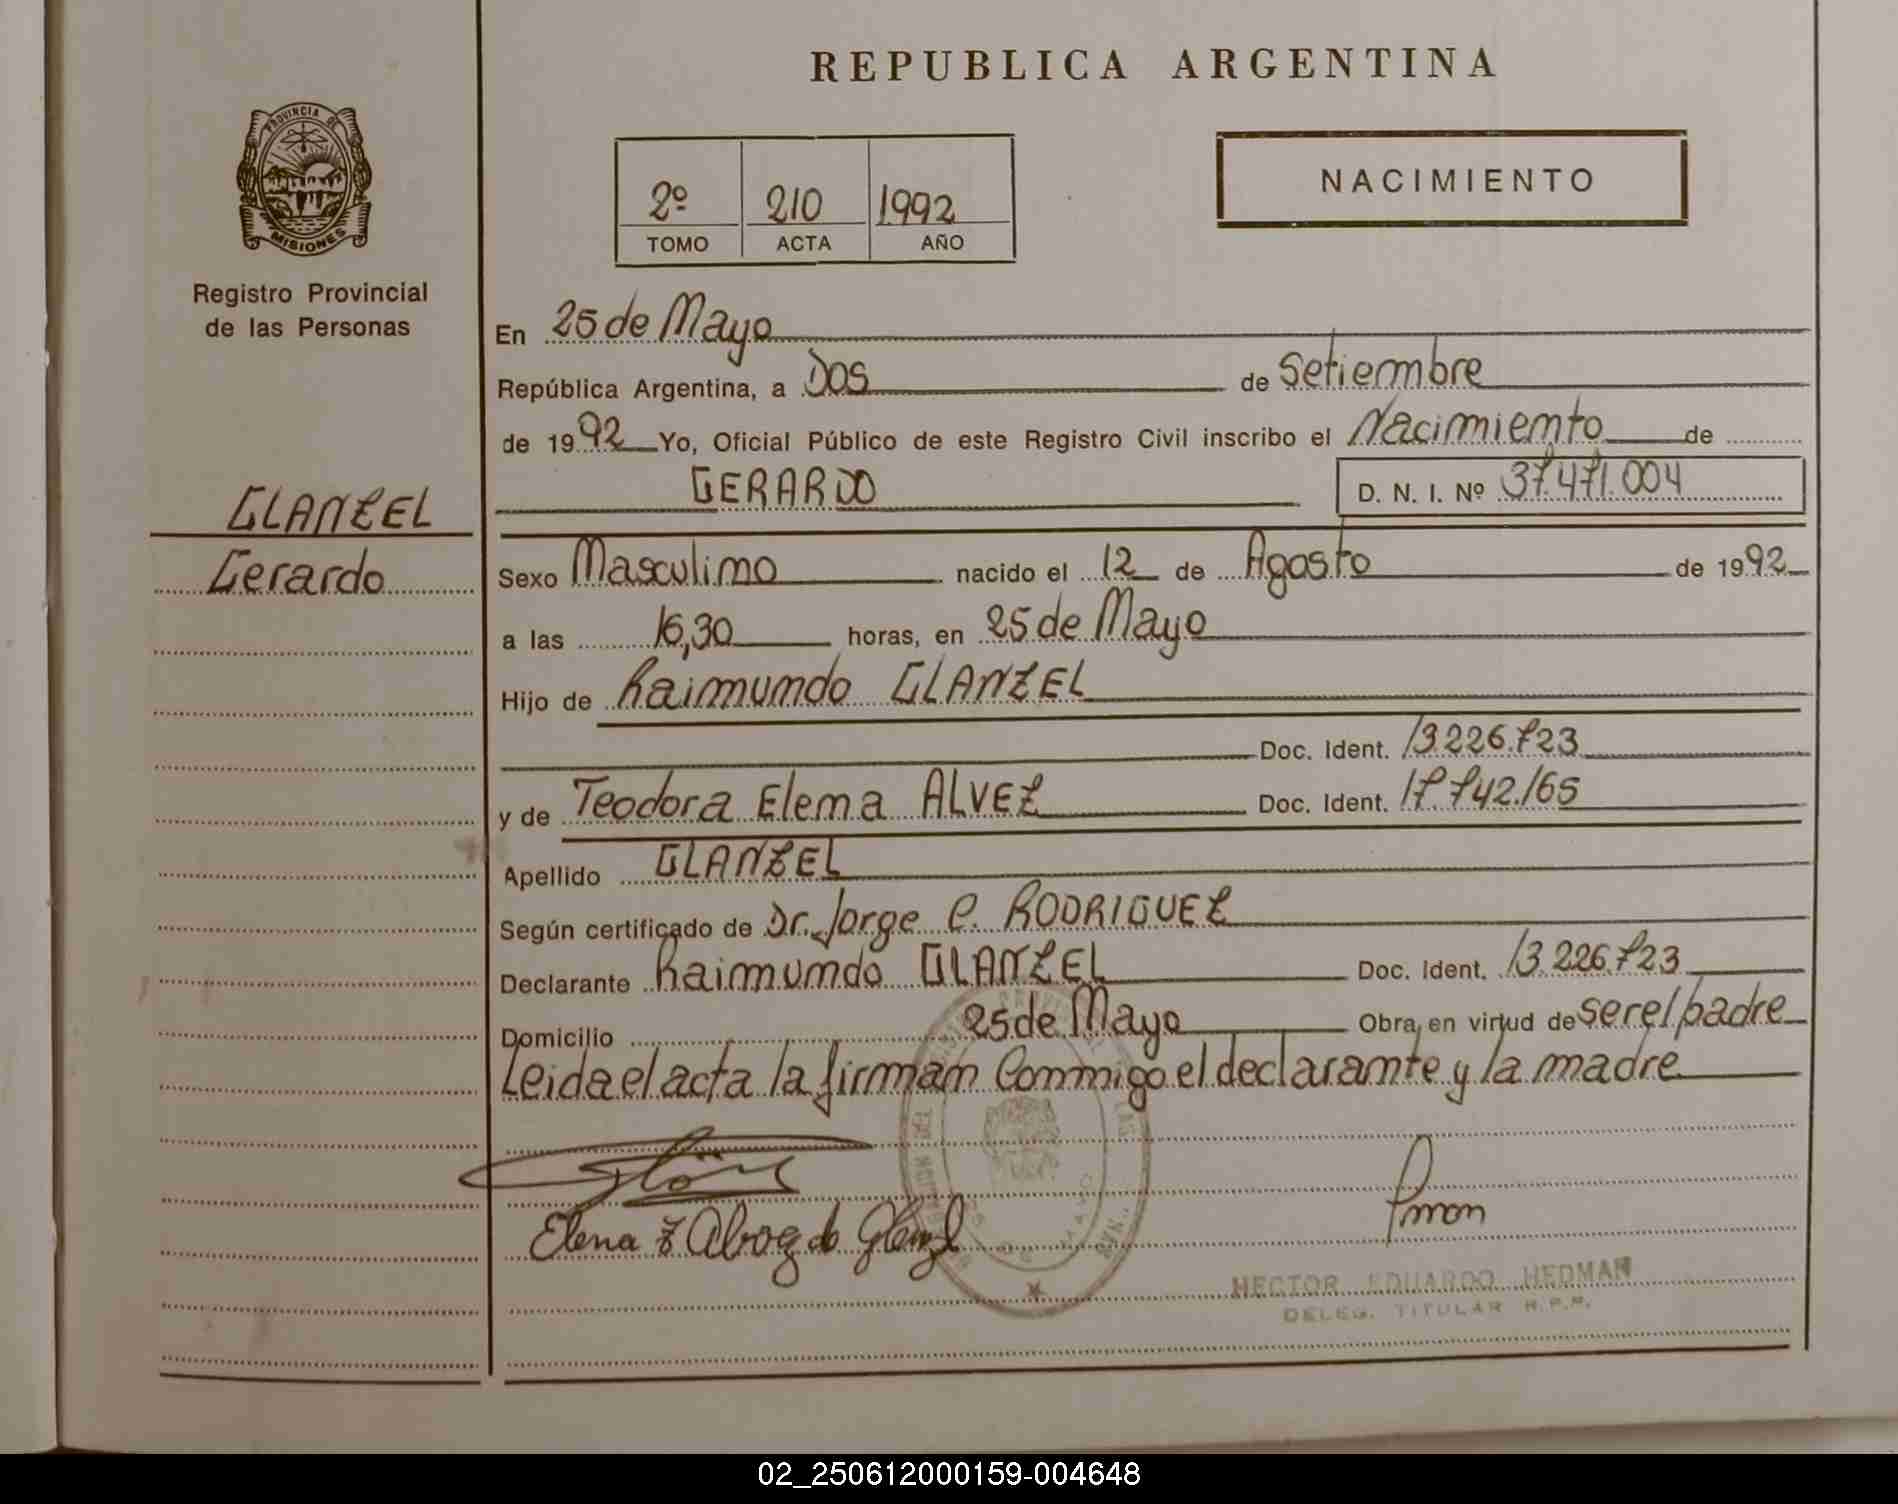 REPUBLICA ARGENTINA
PROVINCIA DE
MISIONES
Registro Provincial
de las Personas
2º 210 1992
TOMO ACTA AÑO
NACIMIENTO
GLANZEL
Gerardo
En 25 de Mayo
República Argentina, a Dos de Setiembre
de 1992 Yo, Oficial Público de este Registro Civil inscribo el Nacimiento de
GERARDO D. N. I. Nº 37.471.004
Sexo Masculino nacido el 12 de Agosto de 1992
a las 16,30 horas, en 25 de Mayo
Hijo de Raimundo GLANZEL
Doc. Ident. 13.226.723
y de Teodora Elena ALVEZ Doc. Ident. 17.742.165
Apellido GLANZEL
Según certificado de Dr. Jorge C. RODRIGUEZ
Declarante Raimundo GLANZEL Doc. Ident. 13.226.723
Domicilio 25 de Mayo Obra en virtud de ser el padre
Leida el acta la firman Conmigo el declarante y la madre
Elena
HECTOR EDUARDO HEDMAN
DELEG. TITULAR R.P.P.
02_250612000159-004648